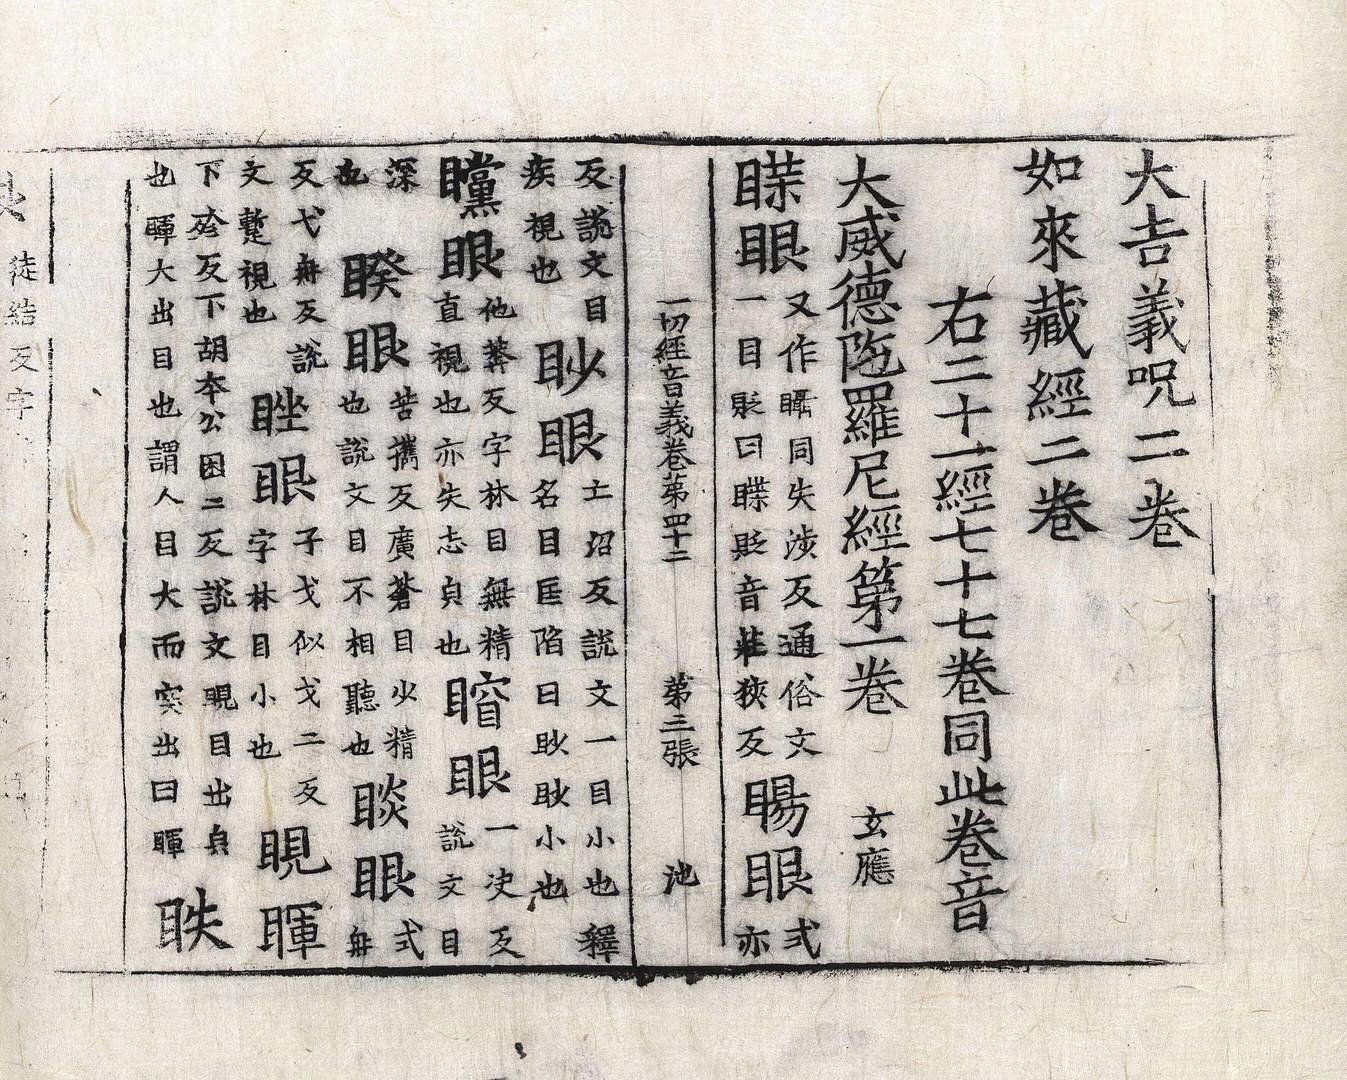 大吉義呪二卷
如來藏經二卷
右二十一經七十七卷同此卷音
大威德陁羅尼經第一卷 玄應
䁋眼又作𦗢同失涉反通俗文一目眨曰䁋眨音莊狹反睗眼式亦
一切經音義卷第四十二 第三張 池
反說文目疾視也眇眼土沼反說文一目小也釋名目匡陷曰眇眇小也
矘眼他莽反字林目無精直視也亦失志皃也䆞眼一决反說文目
深也睽眼苦攜反廣蒼目少精也說文目不相聽也睒眼式冉
反弋冉反說文蹔視也睉眼子戈似戈二反字林目小也睍睴
下殄反下胡本公困二反說文睍目出皃也睴大出目也謂人目大而突出曰睴眣
徒結反字